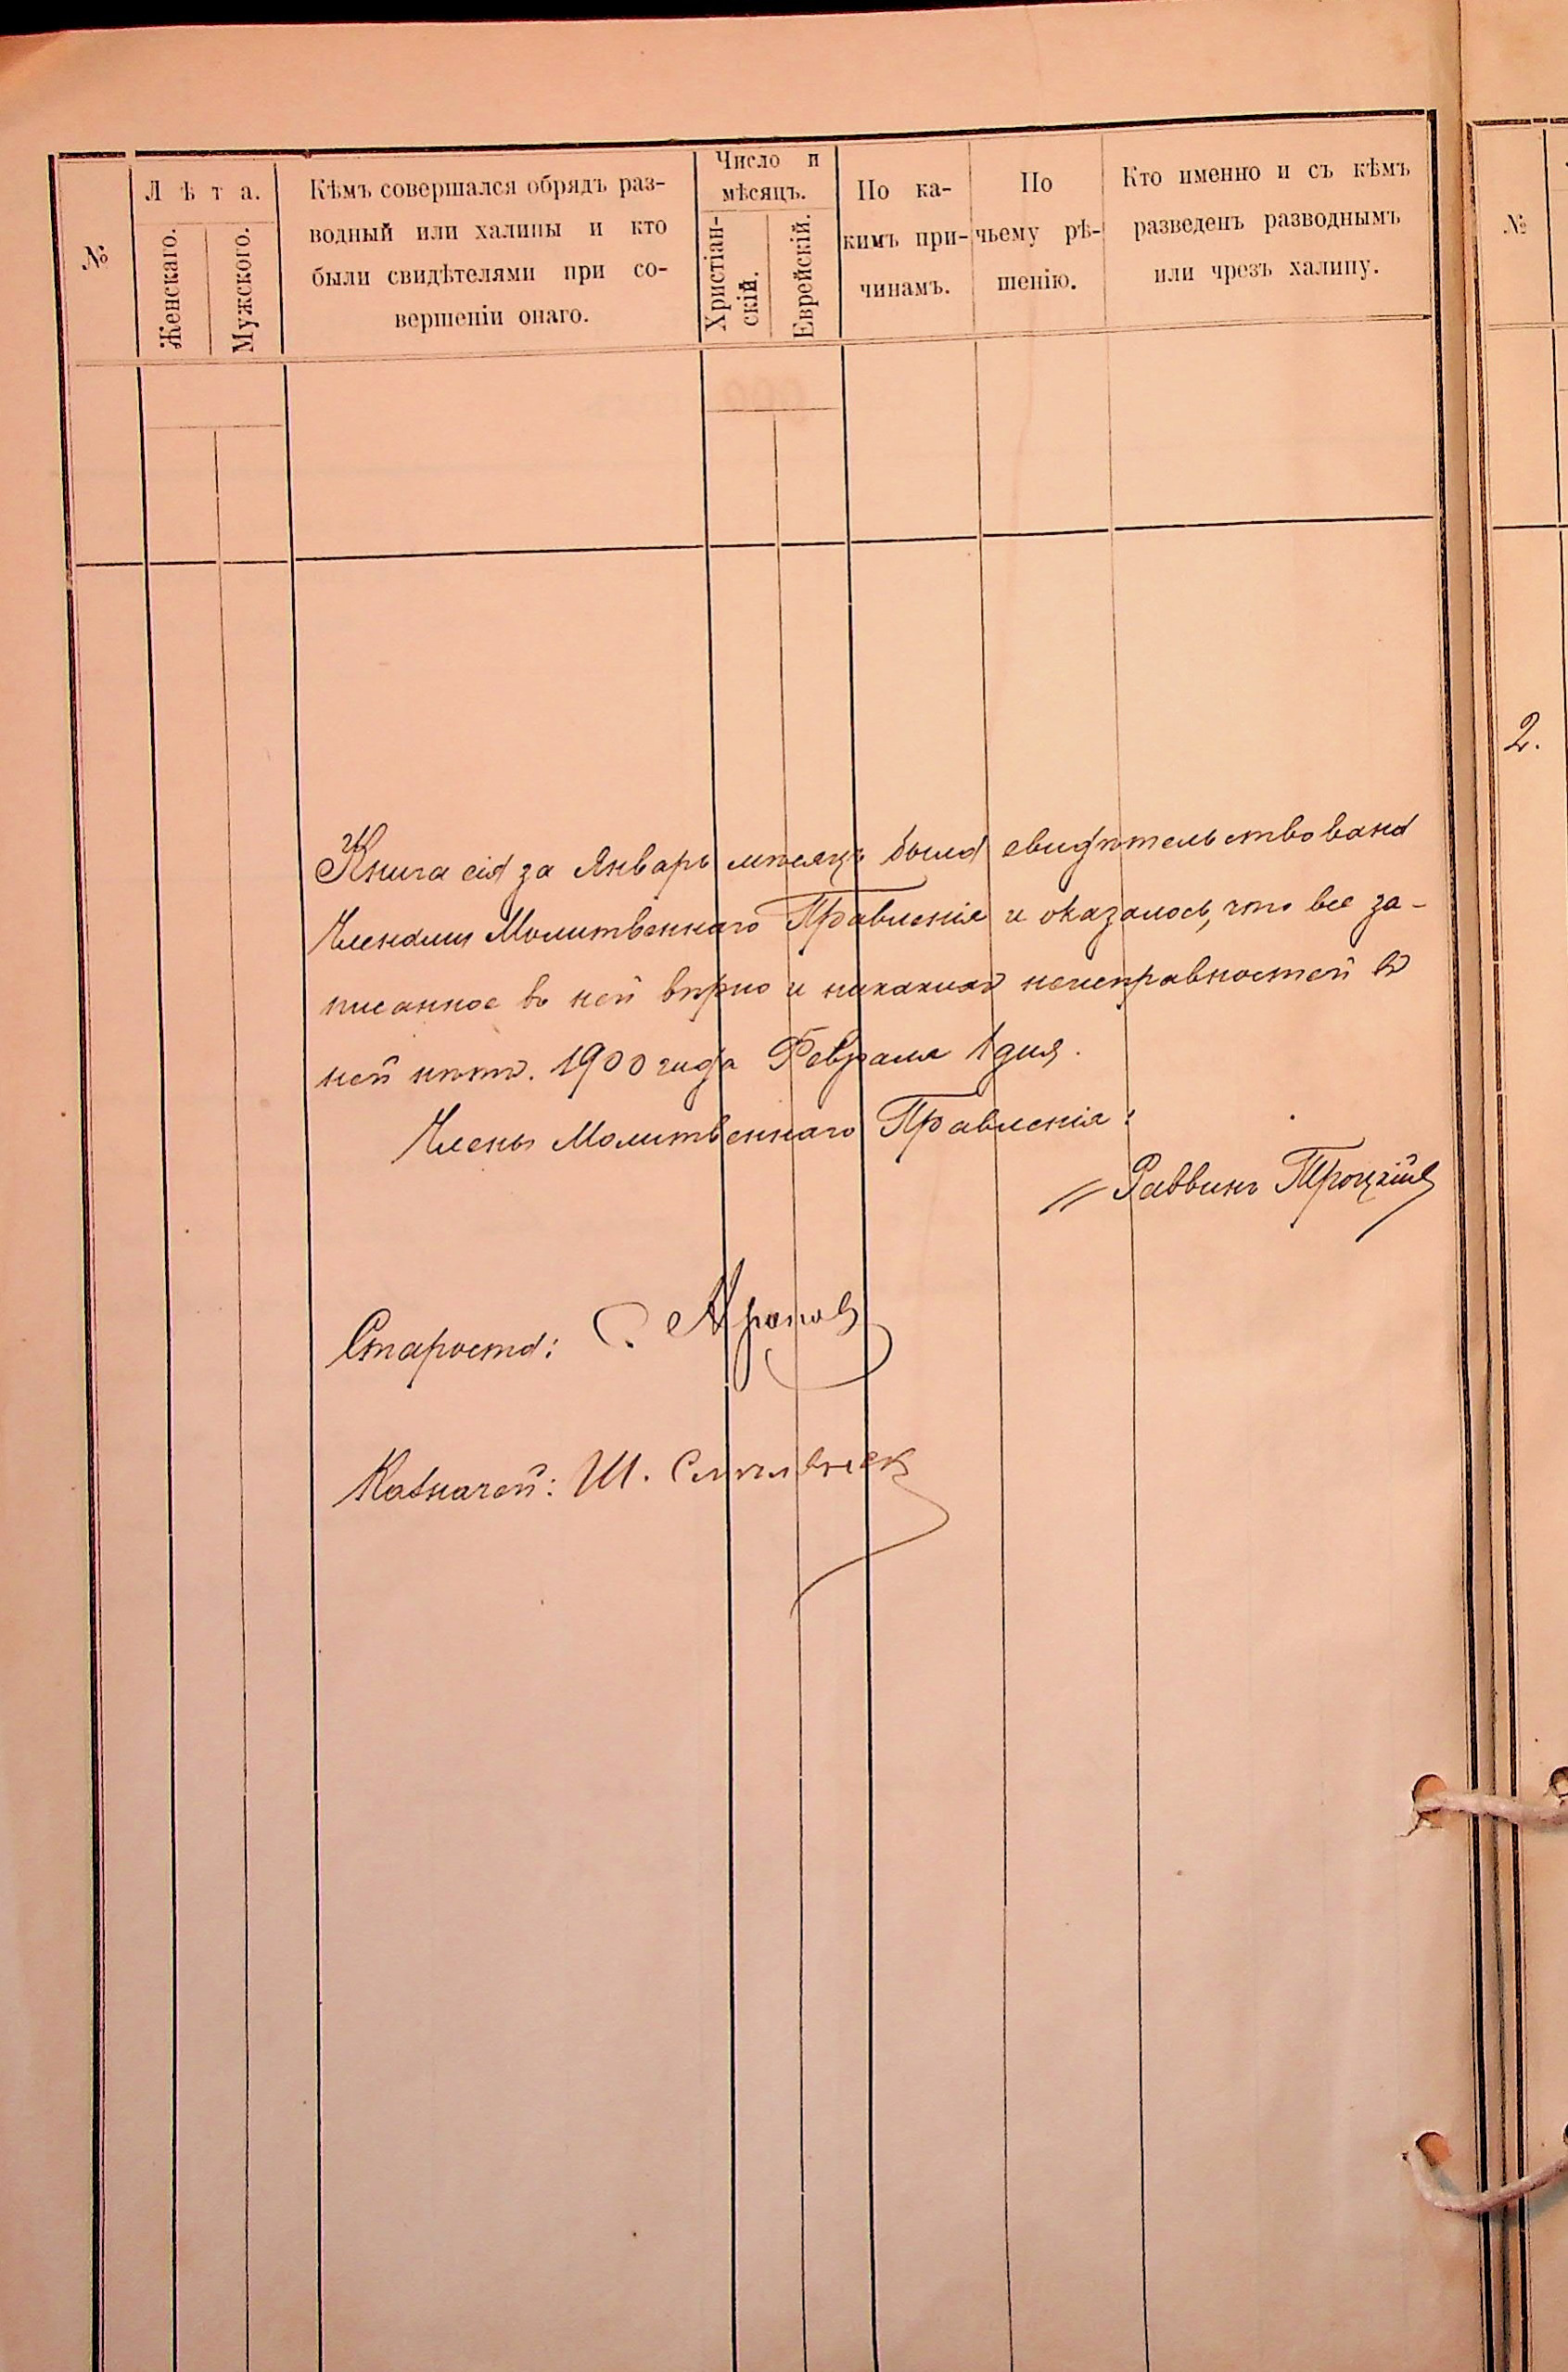 №
Лѣта.
Женскаго.
Мужского.
Кѣмъ совершался обрядъ раз-
водный или халицы и кто
были свидѣтелями при со-
вершеніи онаго.
Число и
мѣсяцъ.
Христіан-
скій.
Еврейскій.
По ка-
кимъ при-
чинамъ.
По
чьему рѣ-
шенію.
Кто именно и съ кѣмъ
разведенъ разводнымъ
или чрезъ халицу.
Книга сія за Январь мѣсяцъ была свидѣтельствована
Членами Молитвеннаго Правленія и оказалось, что все за-
писанное въ ней вѣрно и никакихъ неисправностей въ
ней нѣтъ. 1900 года Февраля 1 дня.
Члены Молитвеннаго Правленія:
Раввинъ Троцкій
Староста:
Казначей: Ш.
№
2.